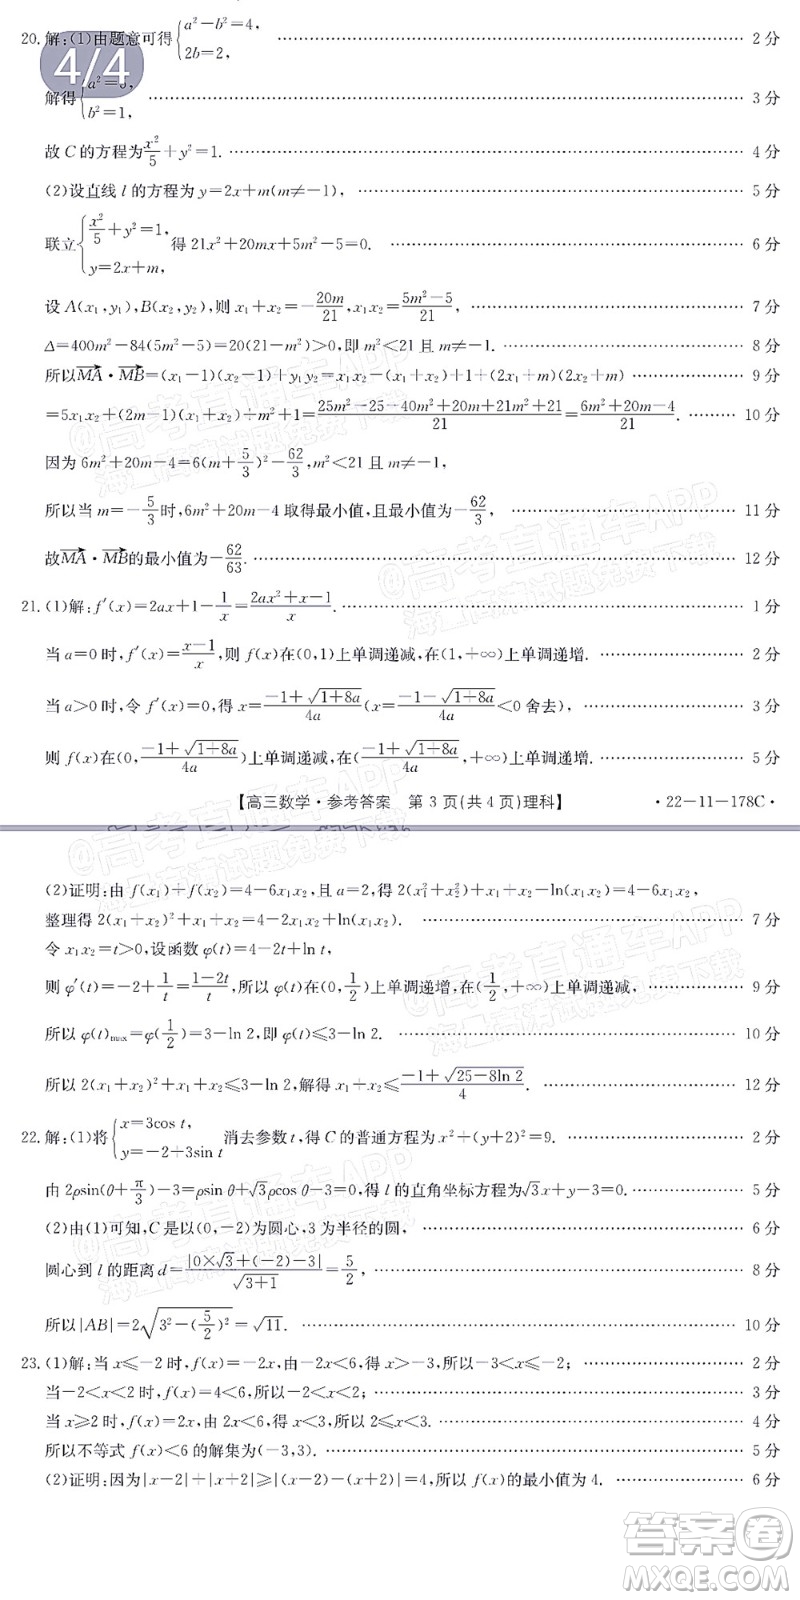 20. 解:(1)由题意可得{a²－b²＝4, 2b＝2, …… 2 分
4/4
解得{a²＝5, b²＝1, …… 3 分
故 C 的方程为x²/5＋y²＝1. …… 4 分
(2)设直线 l 的方程为 y＝2x＋m(m≠－1), …… 5 分
联立{x²/5＋y²＝1, y＝2x＋m, 得 21x²＋20mx＋5m²－5＝0. …… 6 分
设 A(x₁,y₁),B(x₂,y₂),则 x₁＋x₂＝－20m/21,x₁x₂＝(5m²－5)/21, …… 7 分
Δ＝400m²－84(5m²－5)＝20(21－m²)＞0,即 m²＜21 且 m≠－1. …… 8 分
所以MA·MB＝(x₁－1)(x₂－1)＋y₁y₂＝x₁x₂－(x₁＋x₂)＋1＋(2x₁＋m)(2x₂＋m) …… 9 分
＝5x₁x₂＋(2m－1)(x₁＋x₂)＋m²＋1＝(25m²－25－40m²＋20m＋21m²＋21)/21＝(6m²＋20m－4)/21. …… 10 分
因为 6m²＋20m－4＝6(m＋5/3)²－62/3,m²＜21 且 m≠－1,
所以当 m＝－5/3时,6m²＋20m－4 取得最小值,且最小值为－62/3, …… 11 分
故MA·MB的最小值为－62/63. …… 12 分
21. (1)解:f′(x)＝2ax＋1－1/x＝(2ax²＋x－1)/x. …… 1 分
当 a＝0 时,f′(x)＝(x－1)/x,则 f(x)在(0,1)上单调递减,在(1,＋∞)上单调递增. …… 2 分
当 a＞0 时,令 f′(x)＝0,得 x＝(－1＋√(1＋8a))/4a(x＝(－1－√(1＋8a))/4a＜0 舍去), …… 3 分
则 f(x)在(0,(－1＋√(1＋8a))/4a)上单调递减,在((－1＋√(1＋8a))/4a,＋∞)上单调递增. …… 5 分
【高三数学·参考答案　第 3 页(共 4 页)理科】　·22－11－178C·
(2)证明:由 f(x₁)＋f(x₂)＝4－6x₁x₂,且 a＝2,得 2(x₁²＋x₂²)＋x₁＋x₂－ln(x₁x₂)＝4－6x₁x₂,
整理得 2(x₁＋x₂)²＋x₁＋x₂＝4－2x₁x₂＋ln(x₁x₂). …… 7 分
令 x₁x₂＝t＞0,设函数 φ(t)＝4－2t＋ln t,
则 φ′(t)＝－2＋1/t＝(1－2t)/t,所以 φ(t)在(0,1/2)上单调递增,在(1/2,＋∞)上单调递减, …… 9 分
所以 φ(t)max＝φ(1/2)＝3－ln 2,φ(t)≤3－ln 2. …… 10 分
所以 2(x₁＋x₂)²＋x₁＋x₂≤3－ln 2,解得 x₁＋x₂≤(－1＋√(25－8ln 2))/4. …… 12 分
22. 解:(1)将{x＝3cos t, y＝－2＋3sin t 消去参数 t,得 C 的普通方程为 x²＋(y＋2)²＝9. …… 2 分
由 2ρsin(θ＋π/3)－3＝ρsin θ＋√3ρcos θ－3＝0,得 l 的直角坐标方程为√3x＋y－3＝0. …… 5 分
(2)由(1)可知,C 是以(0,－2)为圆心,3 为半径的圆, …… 6 分
圆心到 l 的距离 d＝|0×√3＋(－2)－3|/√(3＋1)＝5/2, …… 8 分
所以|AB|＝2√(3²－(5/2)²)＝√11. …… 10 分
23. (1)解:当 x≤－2 时,f(x)＝－2x,由－2x＜6,得 x＞－3,所以－3＜x≤－2; …… 2 分
当－2＜x＜2 时,f(x)＝4＜6,所以－2＜x＜2; …… 3 分
当 x≥2 时,f(x)＝2x,由 2x＜6,得 x＜3,所以 2≤x＜3. …… 4 分
所以不等式 f(x)＜6 的解集为(－3,3). …… 5 分
(2)证明:因为|x－2|＋|x＋2|≥|(x－2)－(x＋2)|＝4,所以 f(x)的最小值为 4. …… 6 分
@高考直通车APP
海量高清试题免费下载
答案卷
MXQE.COM